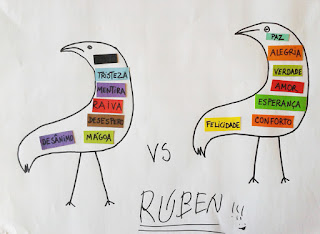 TRISTEZA
MENTIRA
RAIVA
DESESPERO
DESÂNIMO MÁGOA
VS
PAZ
ALEGRIA
VERDADE
AMOR
ESPERANÇA
FELICIDADE CONFORTO
RÚBEN !!!